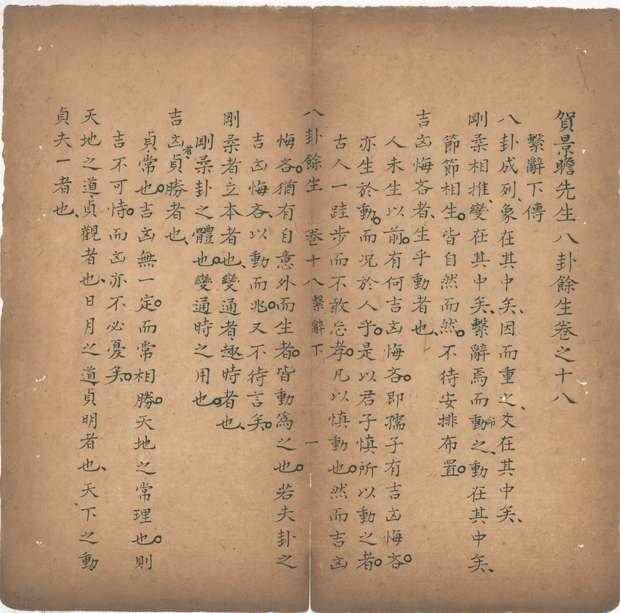 賀景瞻先生八卦餘生卷之十八
繫辭下傳
八卦成列、象在其中矣、因而重之、爻在其中矣、
剛柔相推、變在其中矣、繫辭焉而命之、動在其中矣、
節節相生、皆自然而然、不待安排布置。
吉凶悔吝者、生乎動者也、
人未生以前、有何吉凶悔吝。即孺子有吉凶悔吝。
亦生於動。而况於人乎。是以君子慎所以動之者。
古人一跬步而不敢忘孝。凡以慎動也。然而吉凶
八卦餘生 卷十八 繫辭下 一
悔吝。猶有自意外而生者。皆動為之也。若夫卦之
吉凶悔吝、以動而兆。又不待言矣。
剛柔者、立本者也、變通者、趣時者也、
剛柔卦之體也。變通時之用也。
吉凶者、貞勝者也、
貞常也。吉凶無一定。而常相勝。天地之常理也。則
吉不可恃。而凶亦不必憂矣。
天地之道、貞觀者也、日月之道、貞明者也、天下之動、
貞夫一者也、